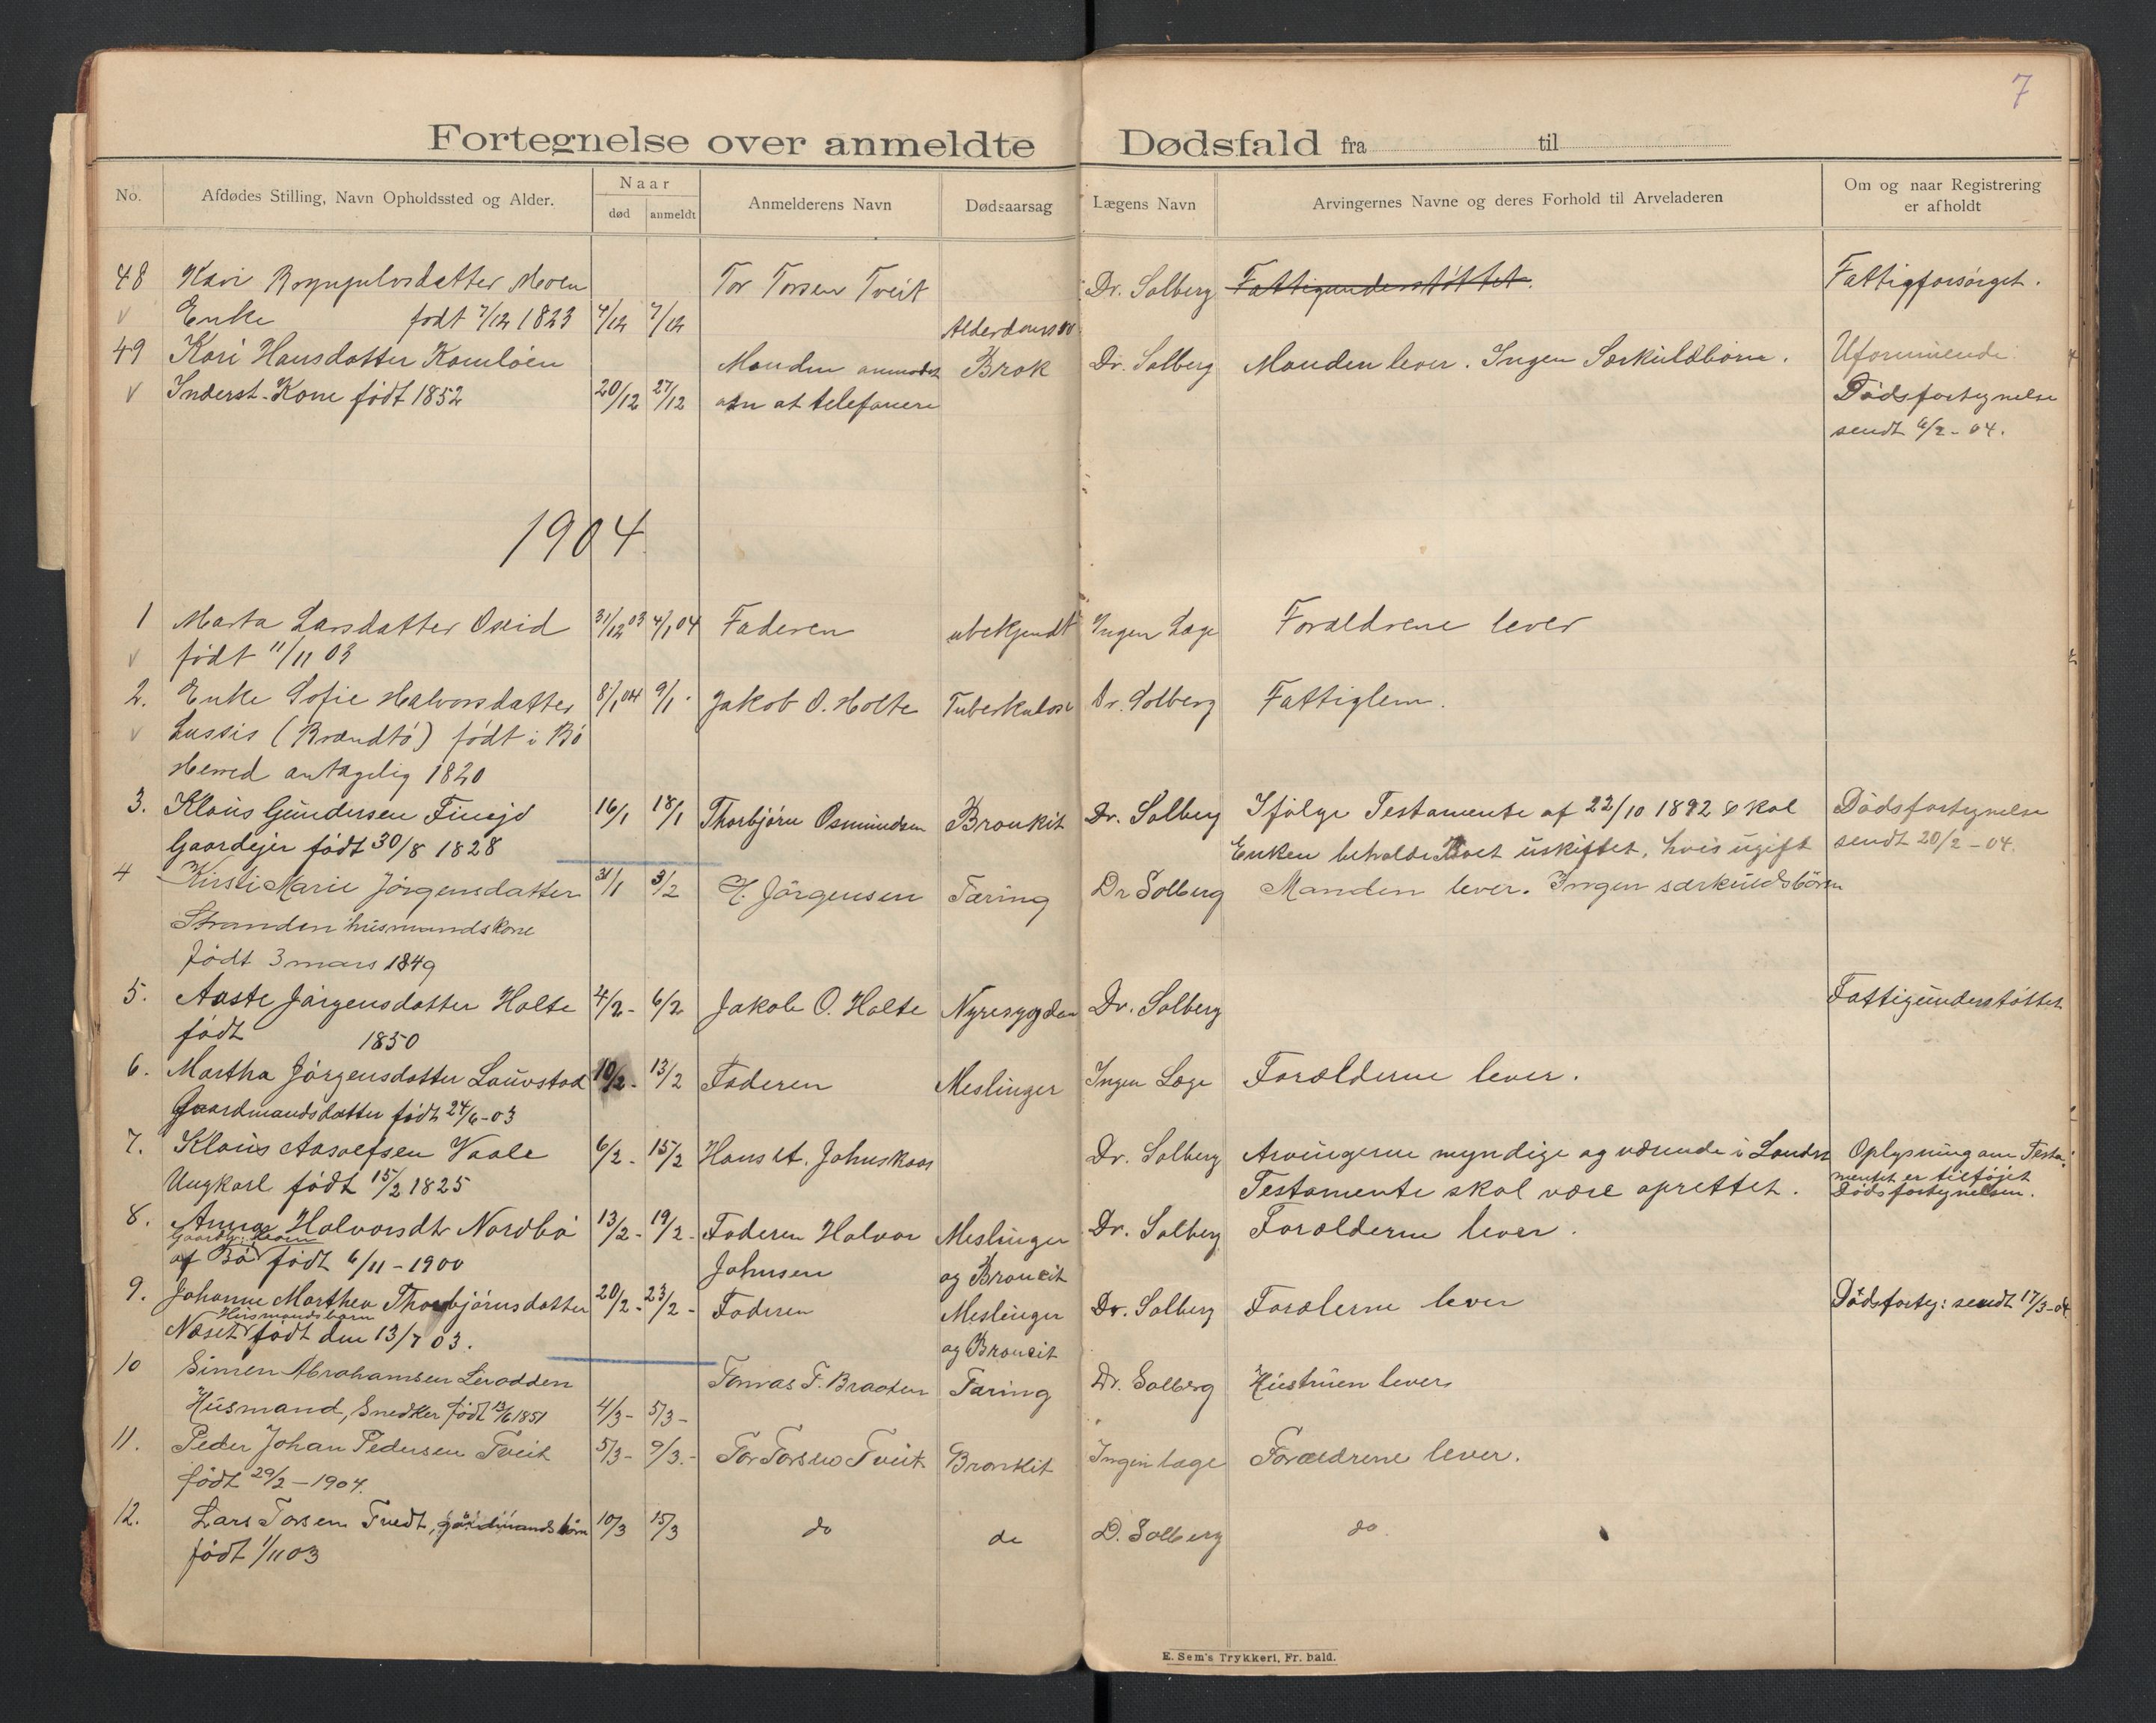 7
Fortegnelse over anmeldte Dødsfald fra til
No. Afdødes Stilling, Navn Opholdssted og Alder. Naar død anmeldt Anmelderens Navn Dødsaarsag Lægens Navn Arvingernes Navne og deres Forhold til Arveladeren Om og naar Registrering er afholdt
48 Kari Moen Tor Torsen Tveit Dr. Solberg Fattigunderstøttet. Fattigforsørget.
Enke født 7/12 1823 4/12 7/12 Alderdomssv
49 Kari Hansdatter Komløen Manden anmodet Brok Dr. Solberg Manden lever. Ingen Særkuldbørn. Uformuende.
Inderst-Kone født 1852 20/12 27/12 om at telefonere Dødsfortegnelse
sendt 6/2-04.
1904
1 Marta Larsdatter Oseid 31/12 03 4/1 04 Faderen ubekjendt Ingen Læge Forældrene lever
født 11/11 03
2. Enke Sofie Halvorsdatter 8/1 04 9/1 Jakob O. Holte Tuberkulose Dr. Solberg Fattiglem.
Lussis (Brændtø) født i Bø
Herred antagelig 1820
3. Klaus Gundersen 16/1 18/1 Thorbjørn Osmundsen Bronkit Dr. Solberg Ifølge Testamente af 22/10 1892 skal Dødsfortegnelse
Gaardejer født 30/8 1828 Enken beholde Boet uskiftet, hvis ugift sendt 20/2-04.
4 Kirsti Marie Jörgensdatter 31/1 3/2 H. Jörgensen Tæring Dr Solberg Manden lever. Ingen særkuldsbörn
Stranden husmandskone
född 3 mars 1849
5. Aaste Jørgensdatter Holte 4/2- 6/2 Jakob O. Holte Nyresygdom Dr. Solberg Fattigunderstøttet
født 1850
6. Martha Jörgensdatter Lauvstad 10/2- 13/2 Faderen Meslinger Ingen Læge Forælderne lever.
Gaardmandsdatter født 24/6-03
7. Klaus Aasolfsen Vaale 6/2- 15/2 Hans A. Johnskaas Dr. Solberg Arvingerne myndige og værende i Landet Oplysning om Testa-
Ungkarl født 15/2 1825 Testamente skal være oprettet. mentet er tilføjet
Dødsfortegnelsen.
8. Anna Halvorsdtr Nordbø 13/2- 19/2- Faderen Halvor Meslinger Dr. Solberg Forælderne lever.
af Bø født 6/11-1900 Johnsen og Broncit
9. Johanne Marthea Thorbjørnsdatter 20/2- 23/2- Faderen Meslinger Dr. Solberg Forælerne lever Dødsforteg: sendt 17/3-04
Husmandsbarn
Næset født den 13/7 03. og Broncit
10 Simen Abrahamsen Lerodden Tomas T. Braaten Tæring Dr. Solberg Hustruen lever
Husmand, Snedker født 13/6 1851 4/3- 5/3-
11. Peder Johan Pedersen Tveit 5/3- 9/3.- Tor Torsen Tveit Bronkit Ingen læge Forældrene lever.
født 29/2-1904.
12. Lars Torsen Tvedt, gårdmandsbörn 10/3 15/3 do do D. Solberg do.
født 1/11 03
E. Sem's Trykkeri, Fr. hald.